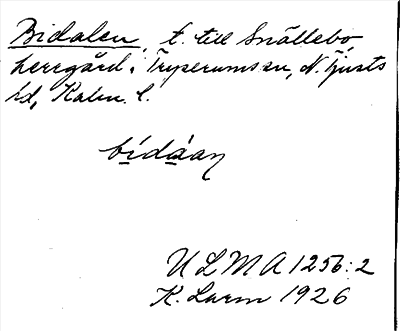 Bidalen, t. till Snällebo
herrgård i Tryserums sn, N. Tjusts
hd, Kalm. l.
bídáan
ULMA 1256:2
K. Larm 1926